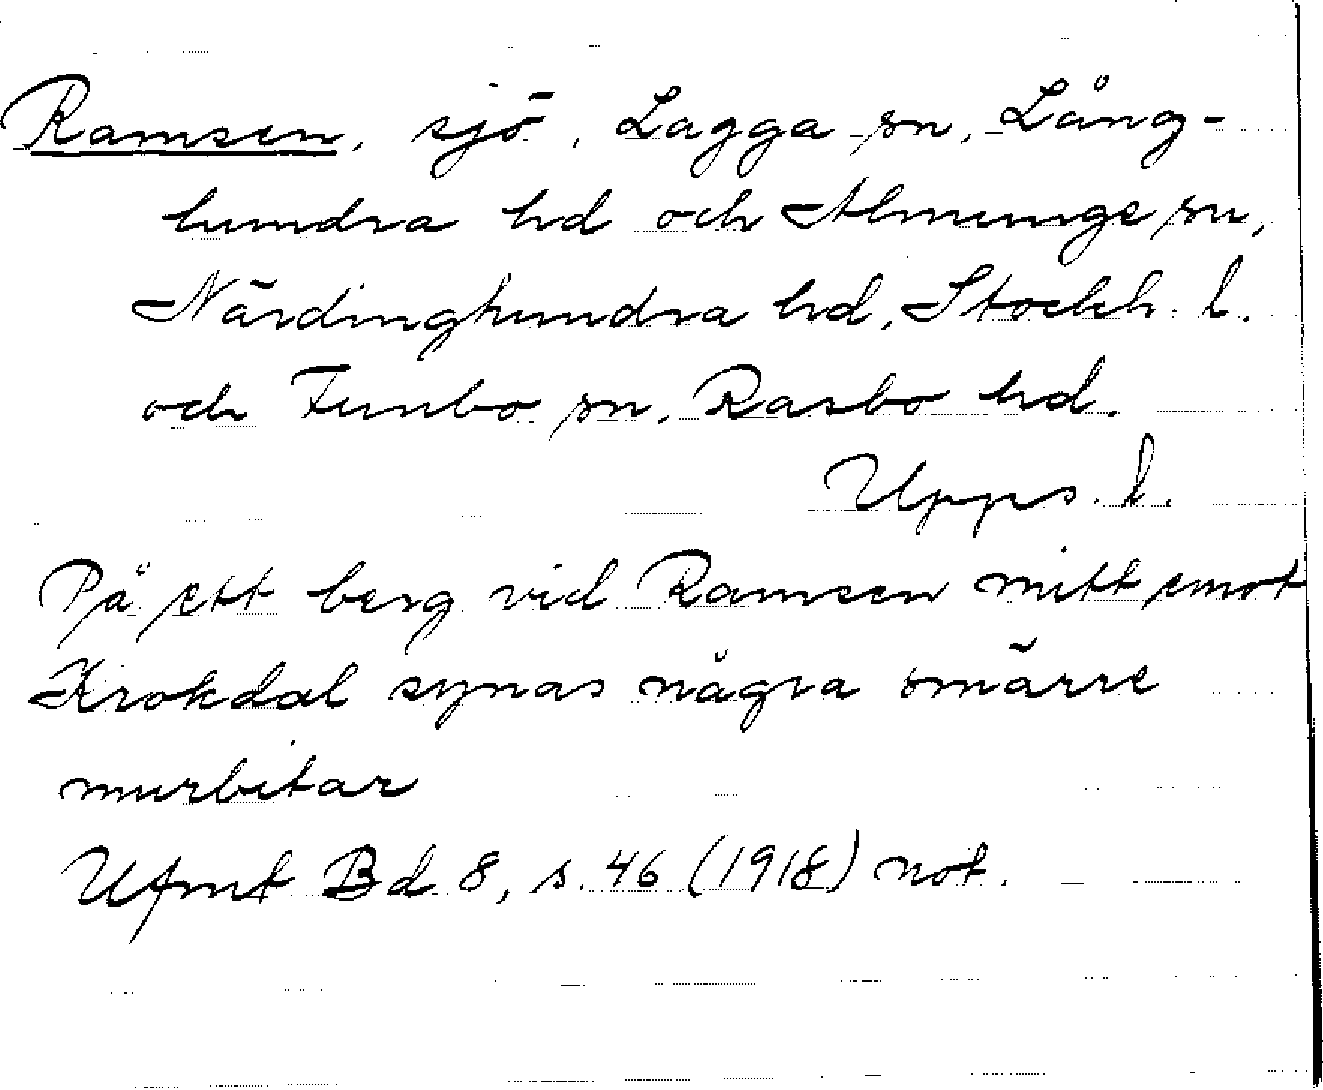 Ramsen, sjö, Lagga sn, Lång-
hundra hd och Almunge sn,
Närdinghundra hd, Stockh. l.
och Funbo sn, Rasbo hd.
Upps. l.
På ett berg vid Ramsen mitt emot
Krokdal synas några smärre
murbitar
Ufmt Bd 8, s. 46 (1918) not.